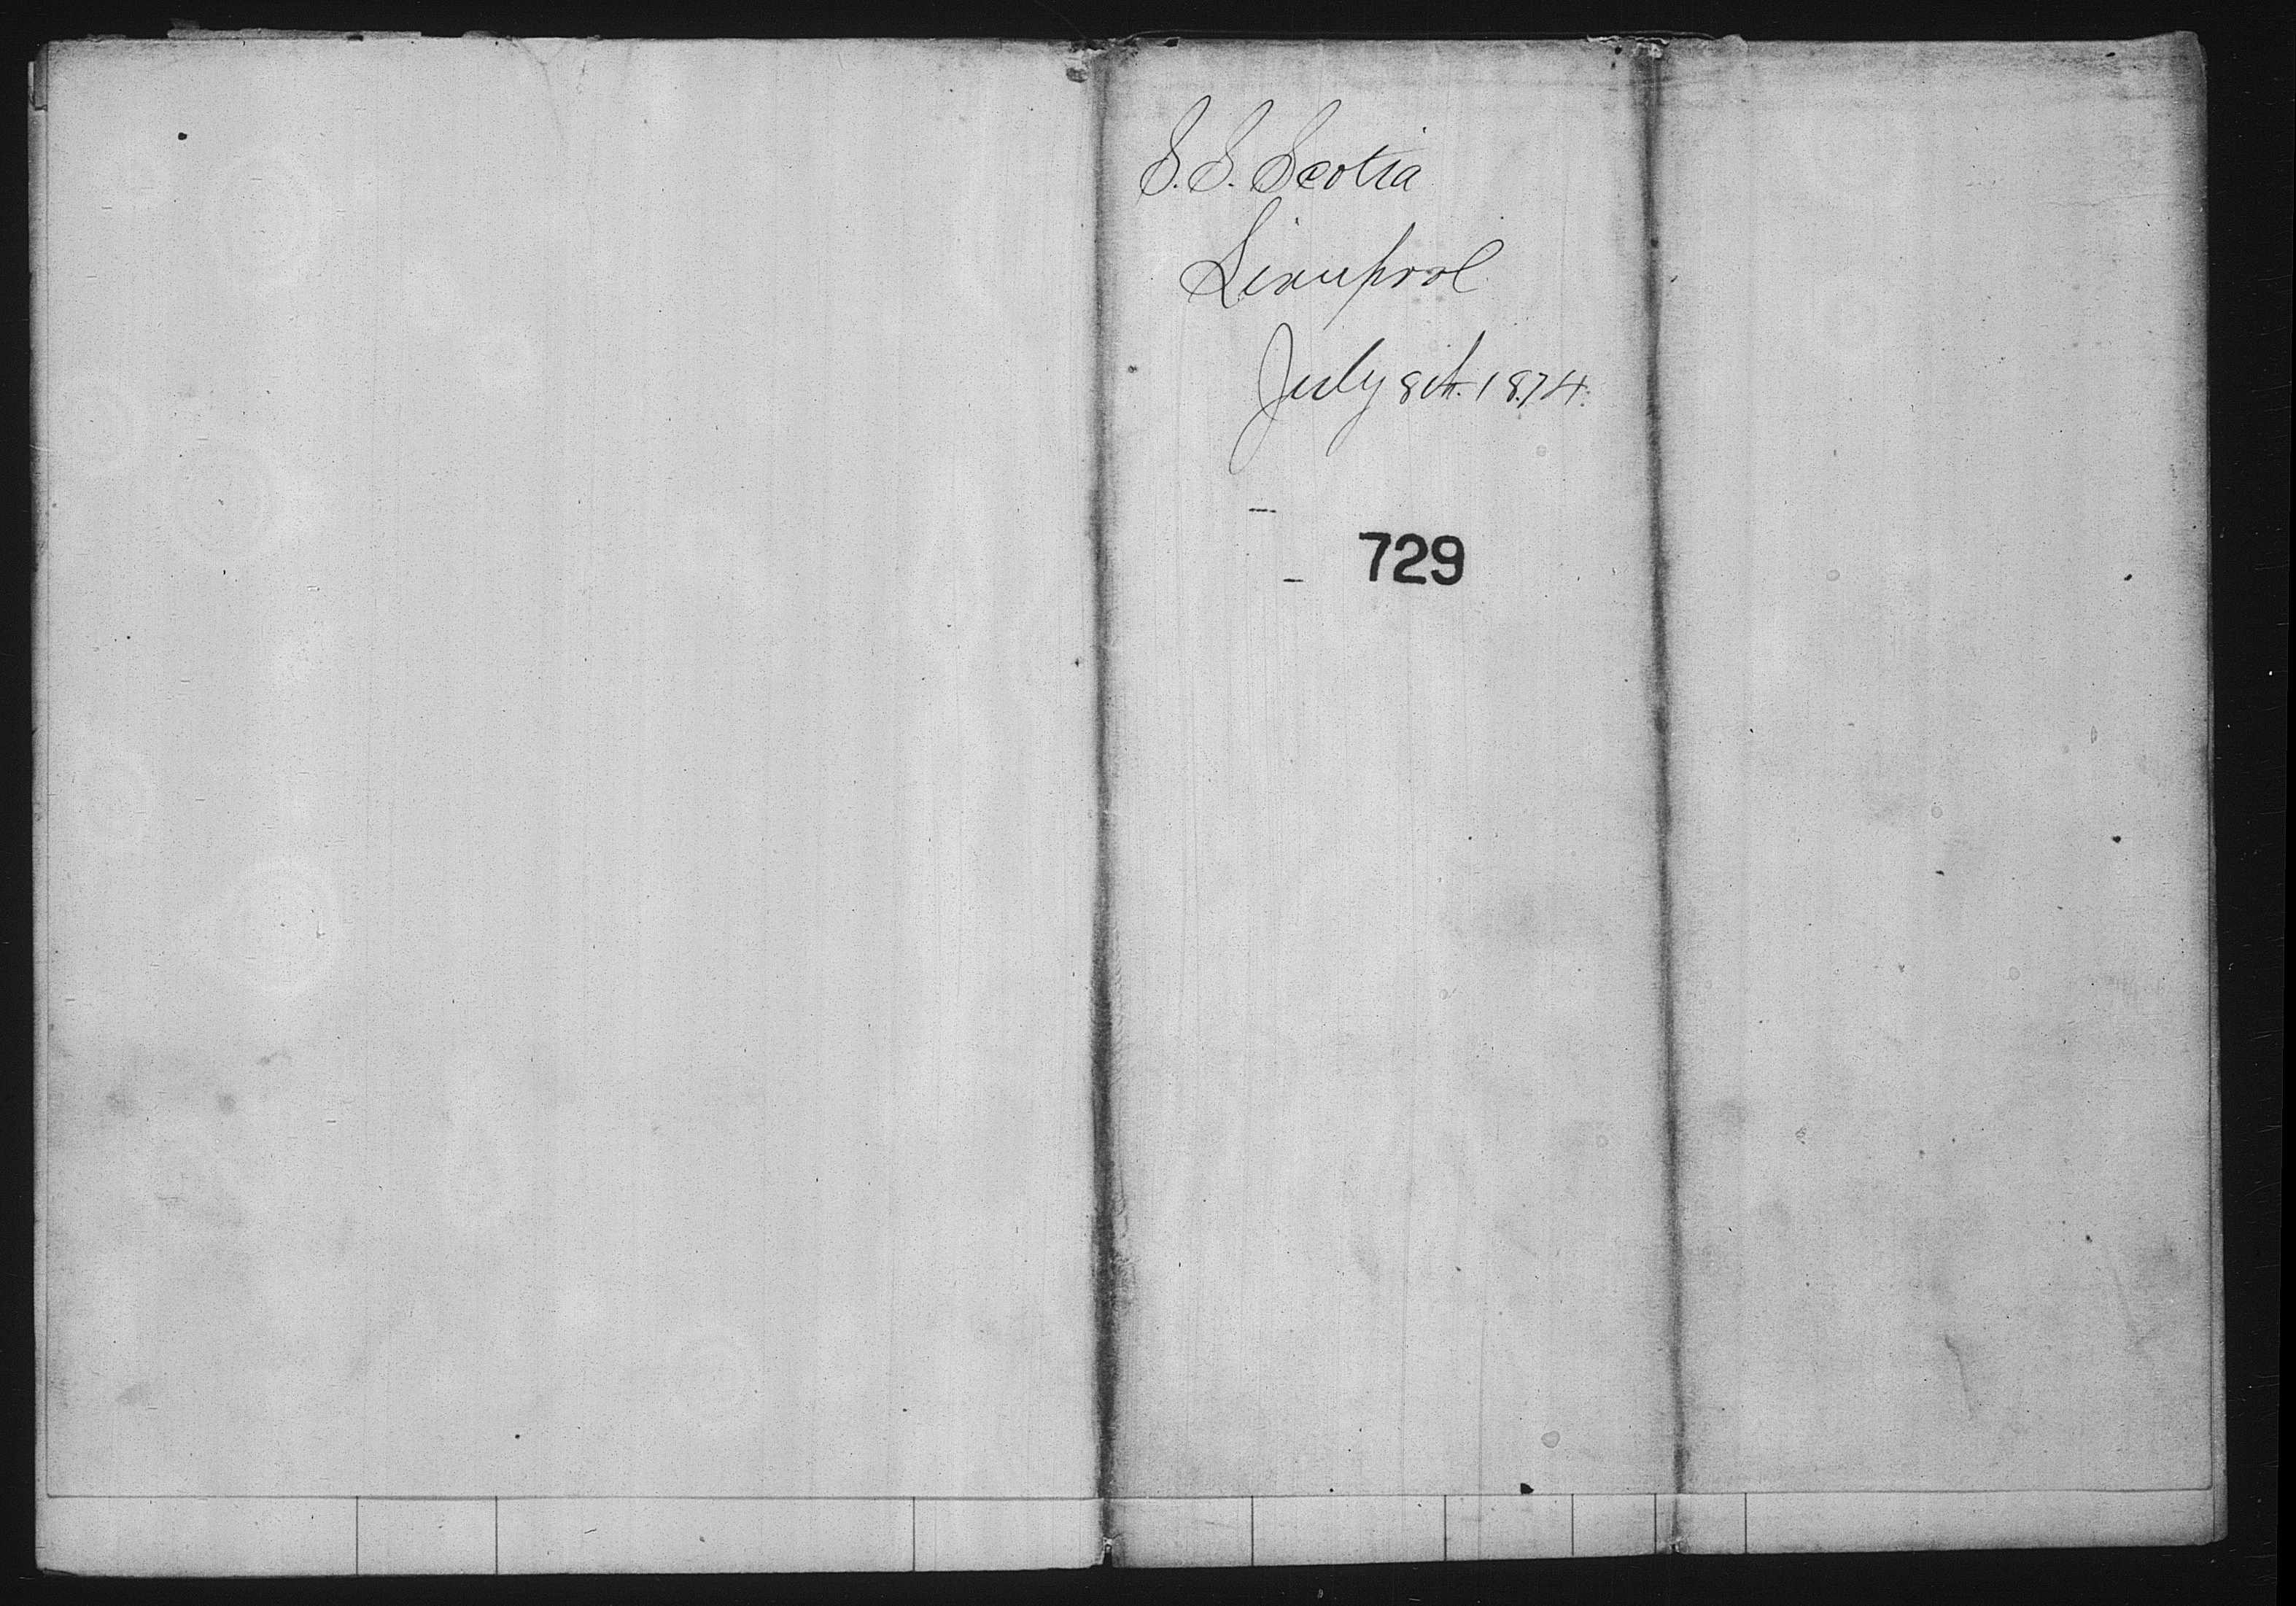 S.S. Scotia
Liverpool
July 8th. 1874.
729